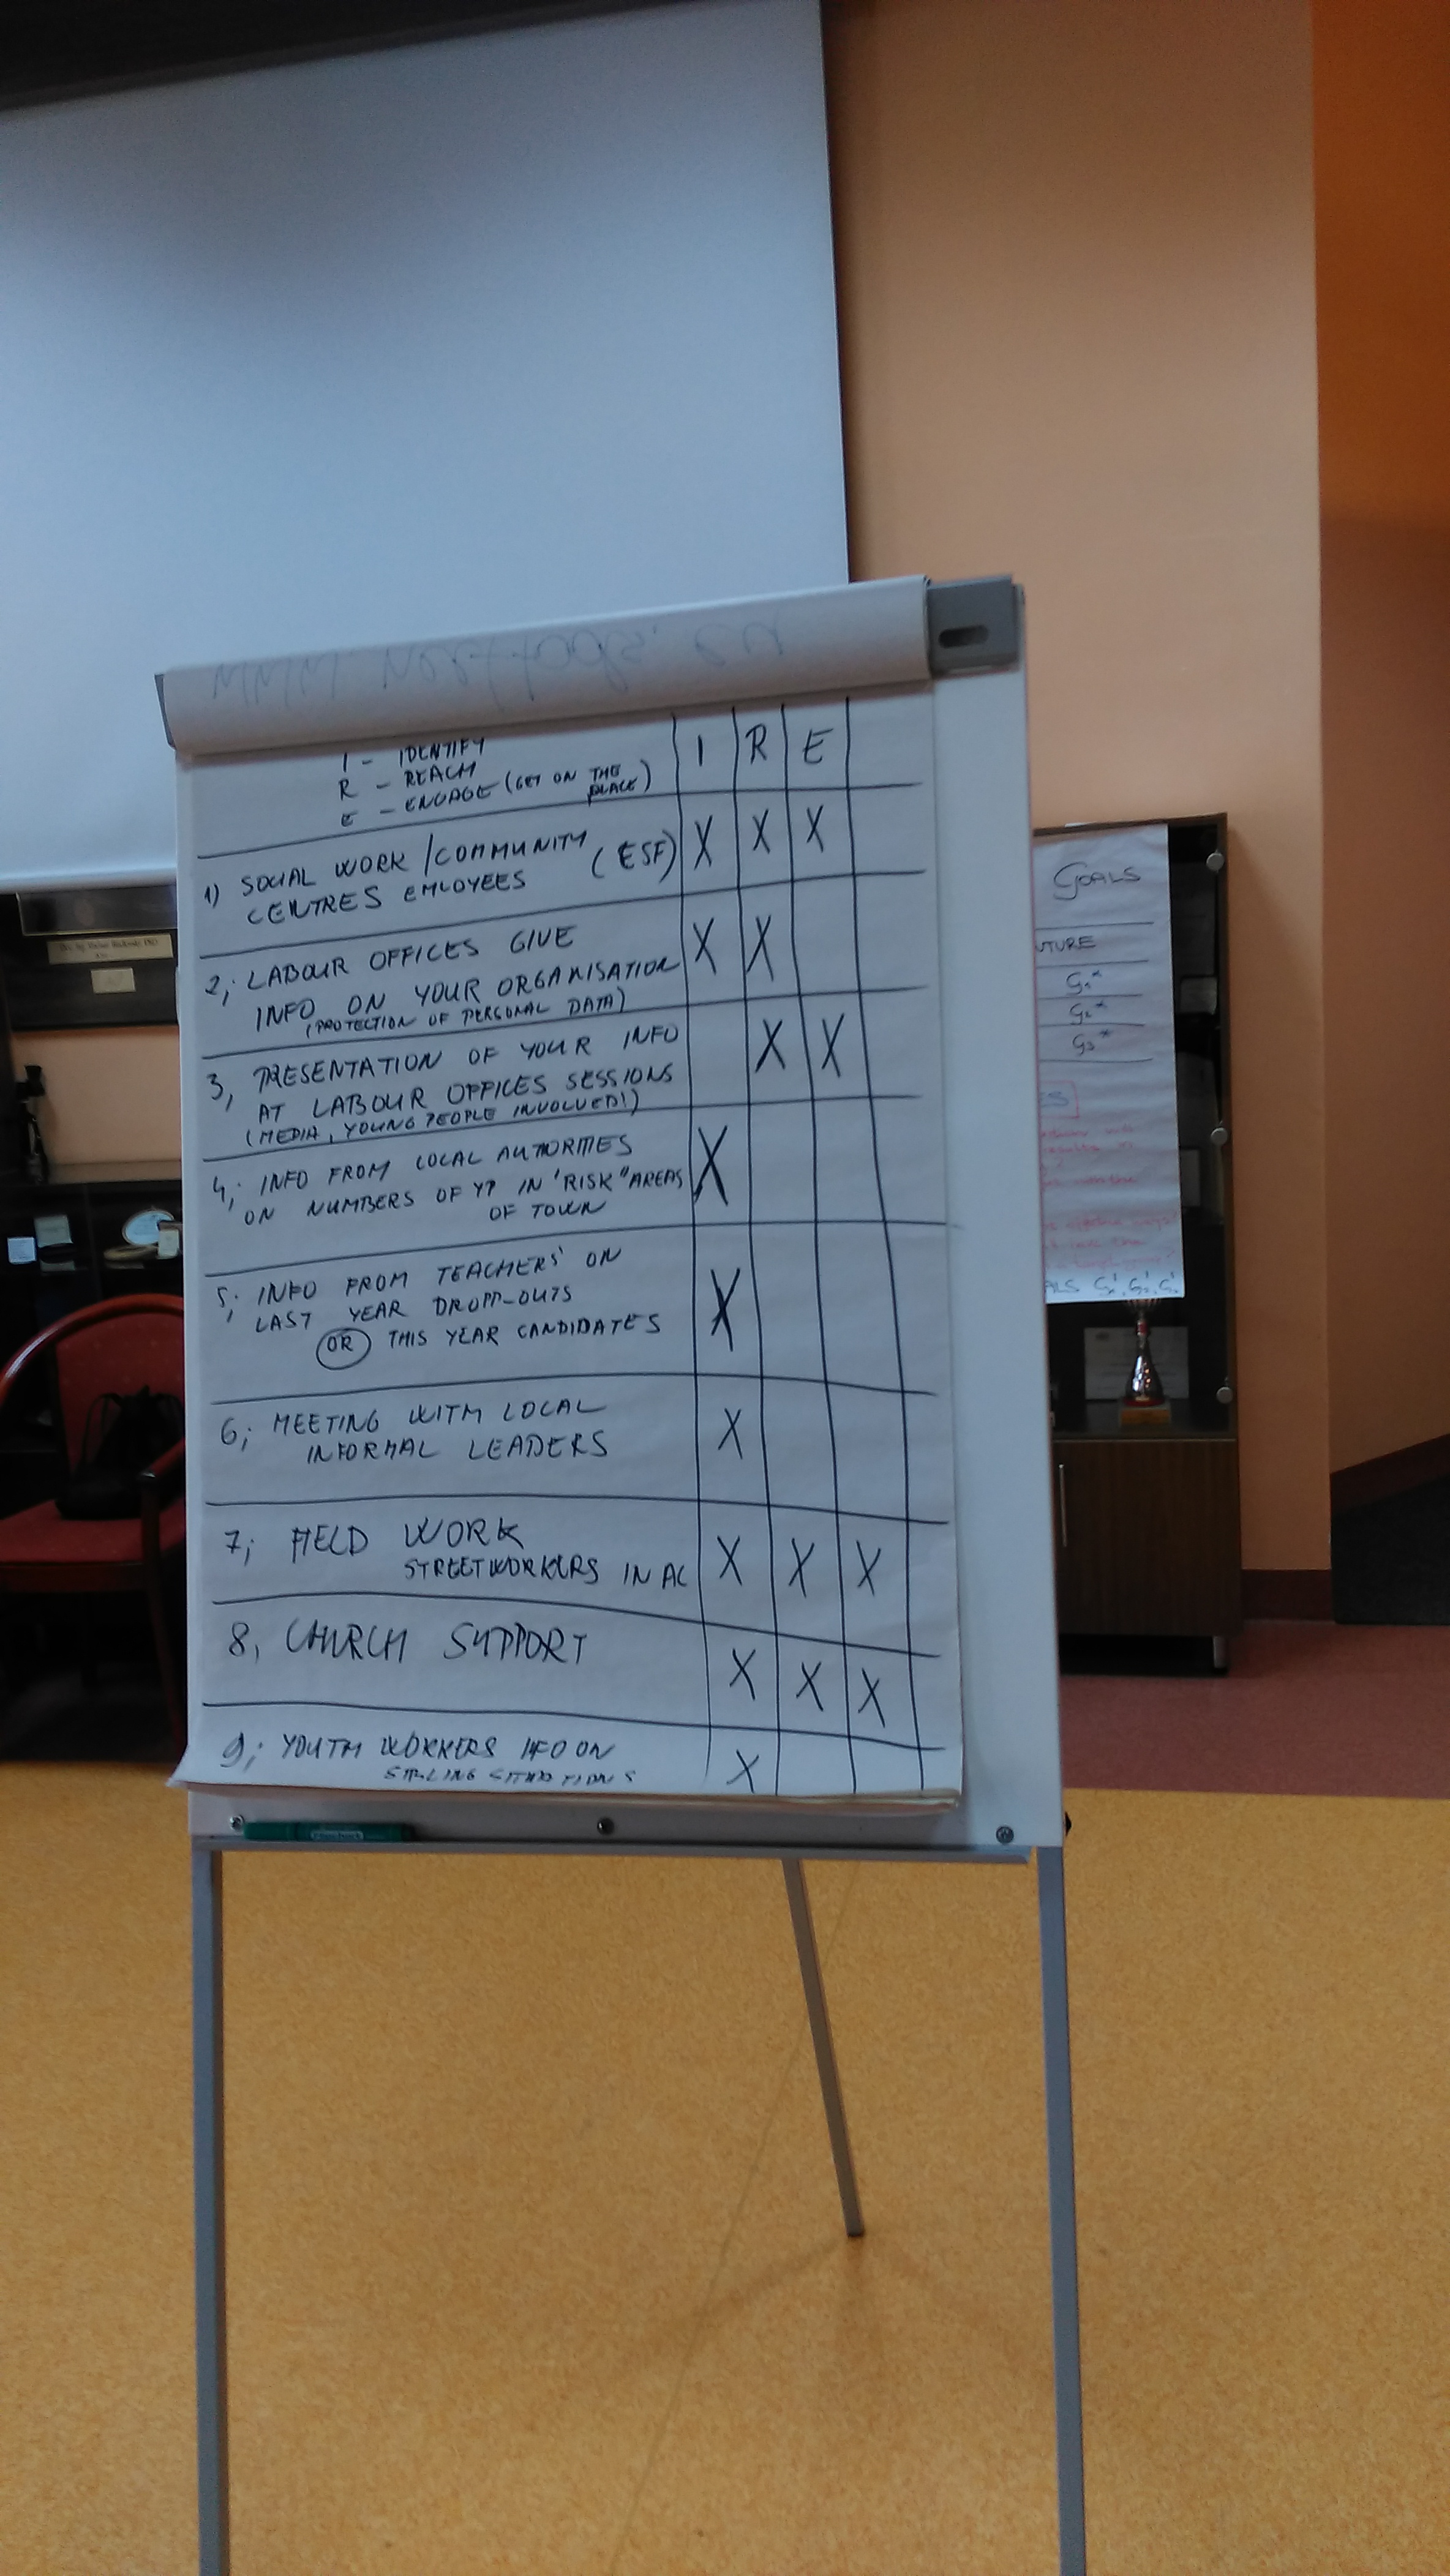 I - IDENTIFY
R - REACH
E - ENGAGE (GET ON THE PLACE)
I R E
1) SOCIAL WORK / COMMUNITY
CENTRES EMLOYEES (ESF) X X X
2; LABOUR OFFICES GIVE
INFO ON YOUR ORGANISATION X X
(PROTECTION OF PERSONAL DATA)
3, PRESENTATION OF YOUR INFO
AT LABOUR OFFICES SESSIONS X X
(MEDIA, YOUNG PEOPLE INVOLVED!)
4; INFO FROM LOCAL AUTORITIES
ON NUMBERS OF YP IN "RISK" AREAS X
OF TOWN
5; INFO FROM TEACHERS' ON
LAST YEAR DROPP-OUTS X
OR THIS YEAR CANDIDATES
6; MEETING WITH LOCAL
INFORMAL LEADERS X
7; FIELD WORK
STREETWORKERS IN AC X X X
8, CHURCH SUPPORT X X X
9; YOUTH WORKERS IFO ON X
GOALS
UTURE
G₁*
G₂*
G₃*
ES